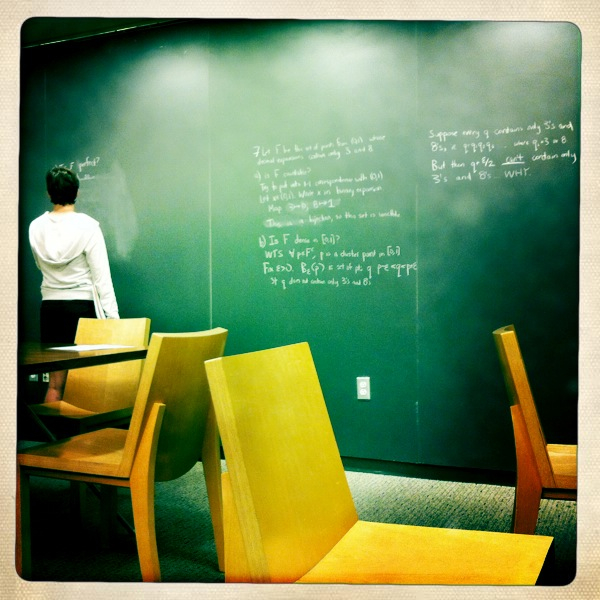 Is F perfect?
7 Let F be the set of points from [0,1] whose
decimal expansions contain only 3 and 8
a) is F countable?
Try to put into 1-1 correspondence with
in binary expansion
Map
is a bijection, so this set is
b) Is F dense in [0,1]?
WTS ∀ p∈F, p is a cluster point in [0,1]
Fix ε>0. Bε(p) = set of pts q p-ε<q<p+ε
St q does not contain only 3's and 8's
Suppose every q contains only 3's and
8's. where = 3 or 8
But then can't contain only
3's and 8's... WHY.